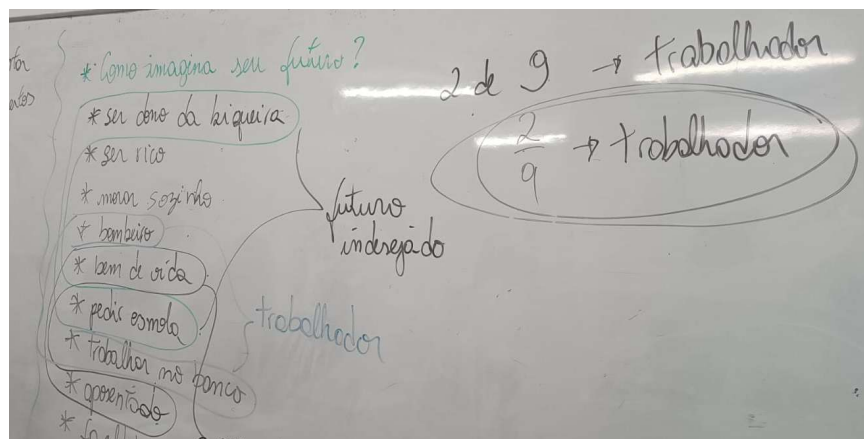 * Como imagina seu futuro?
* ser dono da biqueira
* ser rico
* morar sozinho
* bombeiro
* bem de vida
* pedir esmola
* trabalhar no banco
* aposentado
*
futuro
indesejado
trabalhador
2 de 9 → trabalhador
2/9 → trabalhador